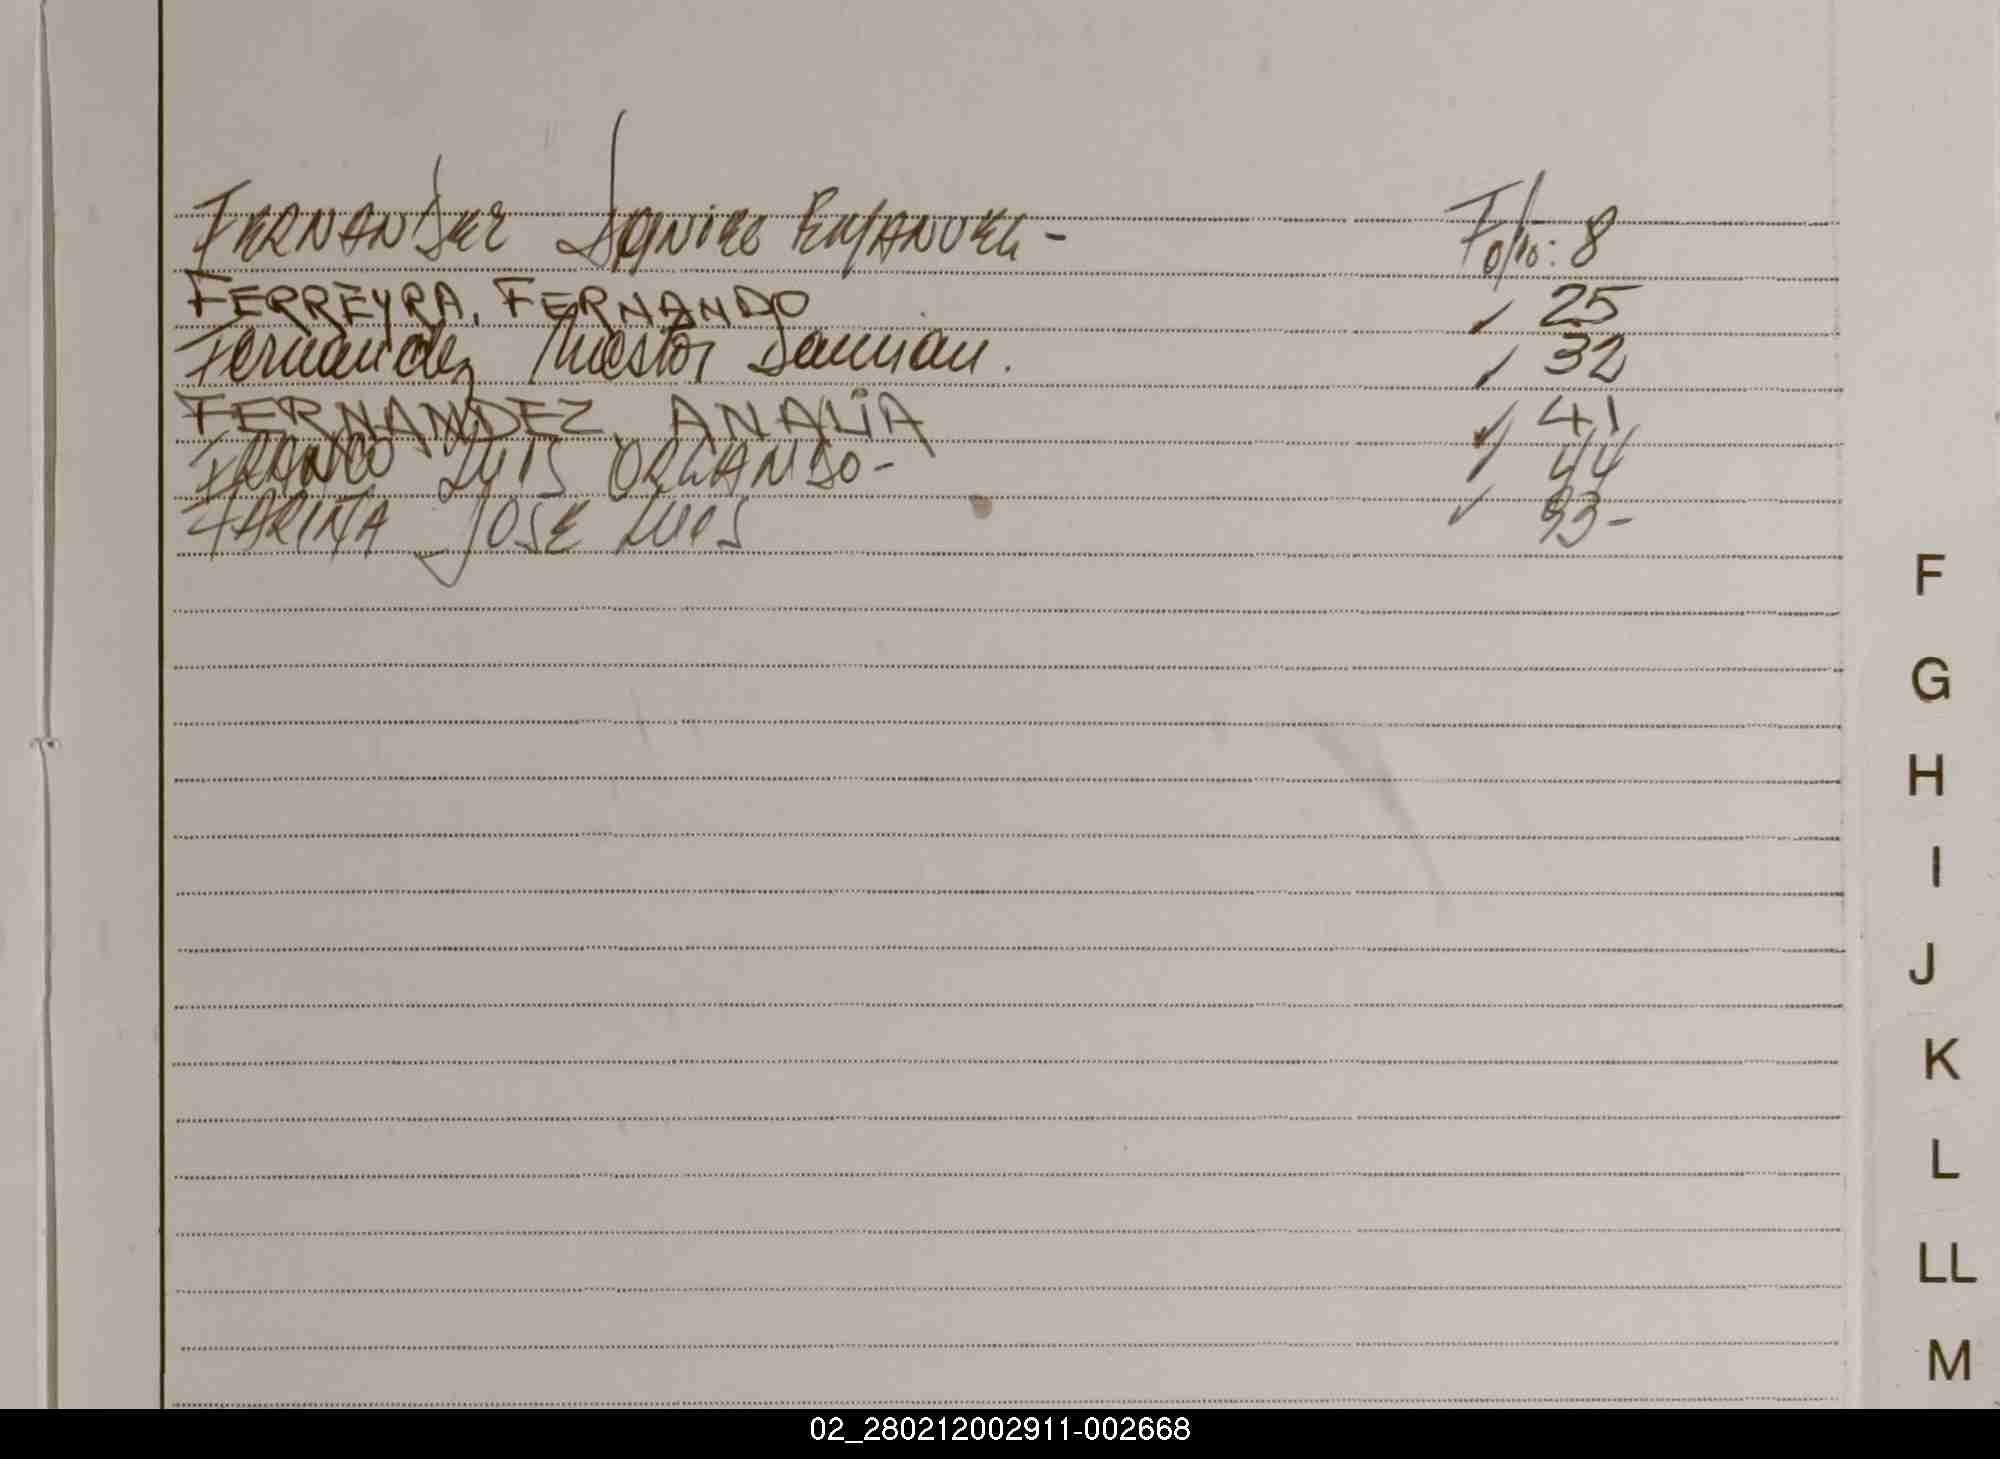 FERNANDEZ DANIEL EMANUEL - Folio: 8
FERREYRA, FERNANDO 25
Fernandez Nestor Damian. 32
FERNANDEZ, ANALIA 41
FRANCO LUIS ORLANDO - 44
FARIÑA JOSE LUIS 93-
F
G
H
I
J
K
L
LL
M
02_280212002911-002668